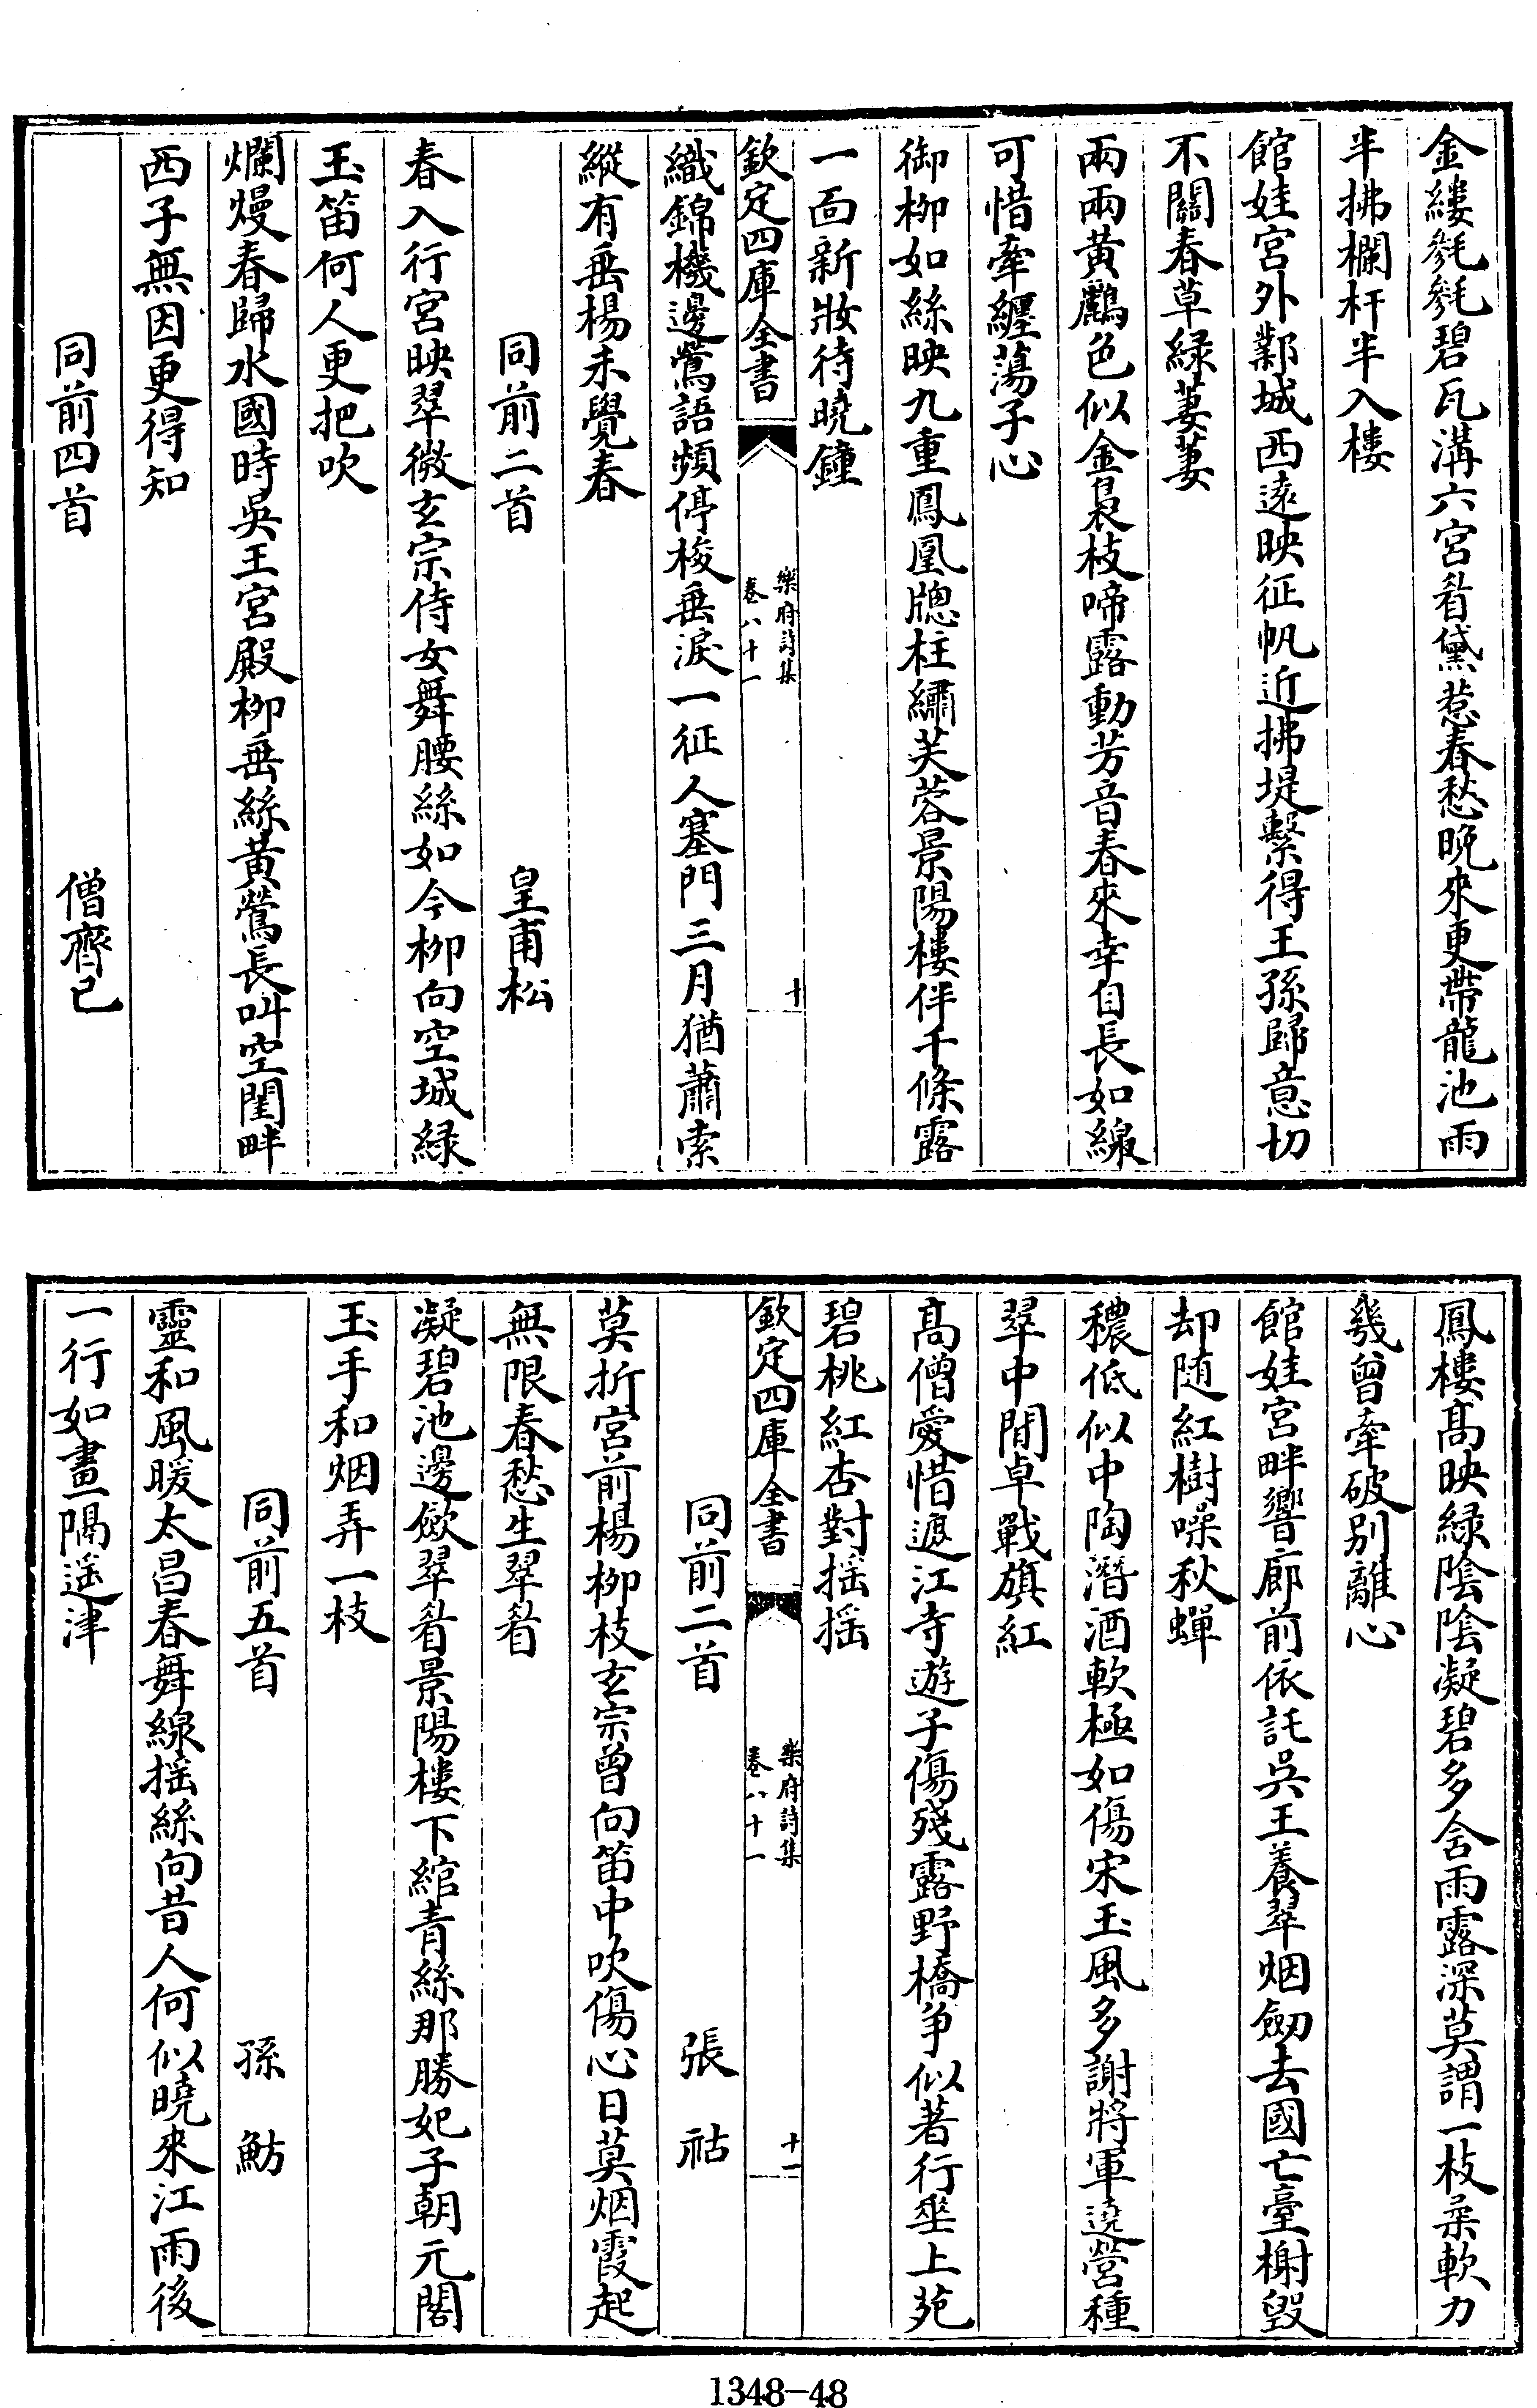 金縷毿毿碧瓦溝六宮眉黛惹春愁晩來更帶龍池雨
半拂欄杆半入樓
館娃宮外鄴城西遠映征帆近拂堤繫得王孫歸意切
不關春草緑萋萋
兩兩黄鸝色似金裊枝啼露動芳音春來幸自長如線
可惜牽纒蕩子心
御栁如絲映九重鳳凰牎柱繡芙蓉景陽樓伴千條露
一面新妝待曉鐘
欽定四庫全書
樂府詩集
卷八十一
十
織錦機邊鶯語頻停梭垂淚一征人塞門三月猶蕭索
縱有垂楊未覺春
同前二首 皇甫松
春入行宮映翠微玄宗侍女舞腰絲如今栁向空城緑
玉笛何人更把吹
爛熳春歸水國時吳王宮殿栁垂絲黄鶯長叫空閨畔
西子無因更得知
同前四首 僧齊己
鳳樓髙映緑陰陰凝碧多含雨露深莫謂一枝柔軟力
幾曾牽破别離心
館娃宮畔響廊前依託吳王養翠烟劒去國亡臺榭毁
却随紅樹噪秋蟬
穠低似中陶潛酒軟極如傷宋玉風多謝將軍遶營種
翠中閒卓戰旗紅
髙僧愛惜遮江寺遊子傷殘露野橋争似著行垂上苑
碧桃紅杏對揺揺
欽定四庫全書
樂府詩集
卷八十一
十一
同前二首 張祜
莫折宮前楊栁枝玄宗曾向笛中吹傷心日莫烟霞起
無限春愁生翠眉
凝碧池邊斂翠眉景陽樓下綰青絲那勝妃子朝元閣
玉手和烟弄一枝
同前五首 孫魴
靈和風暖太昌春舞線揺絲向昔人何似曉來江雨後
一行如畫隔遥津
1348-48